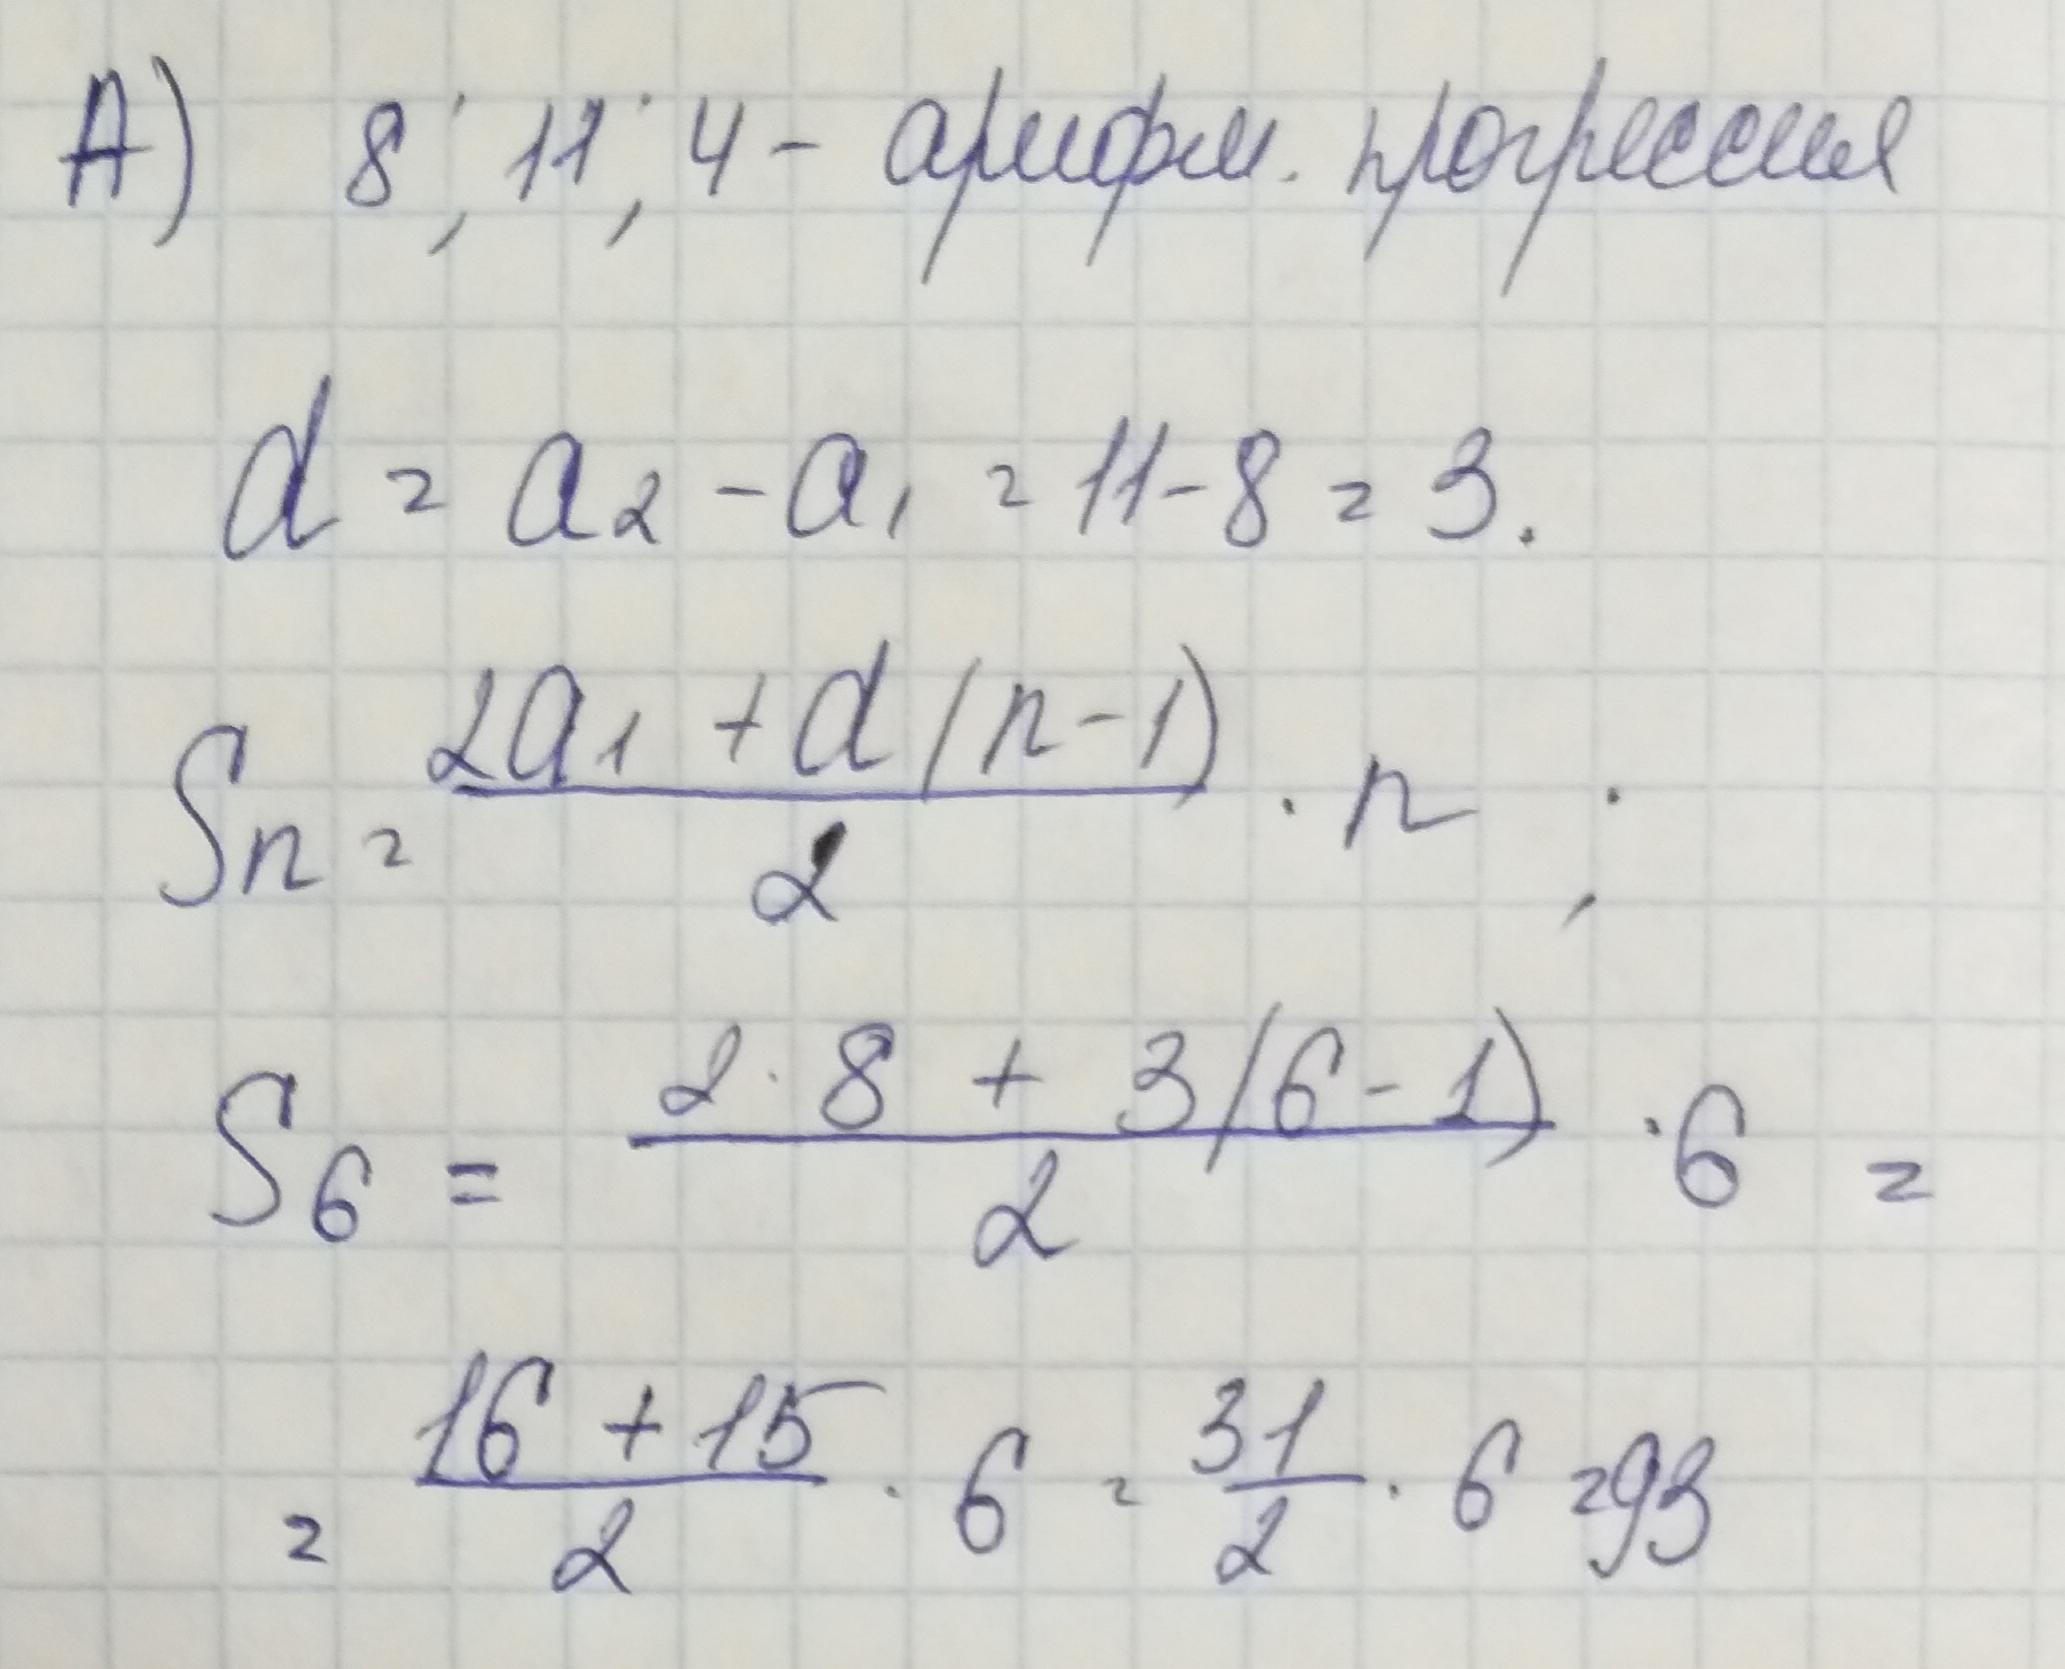 А) 8; 11; 4 - арифм. прогрессия
d = a₂ - a₁ = 11 - 8 = 3.
Sn = (2a₁ + d(n-1))/2 · n ;
S₆ = (2·8 + 3(6-1))/2 · 6 =
= (16 + 15)/2 · 6 = 31/2 · 6 = 93